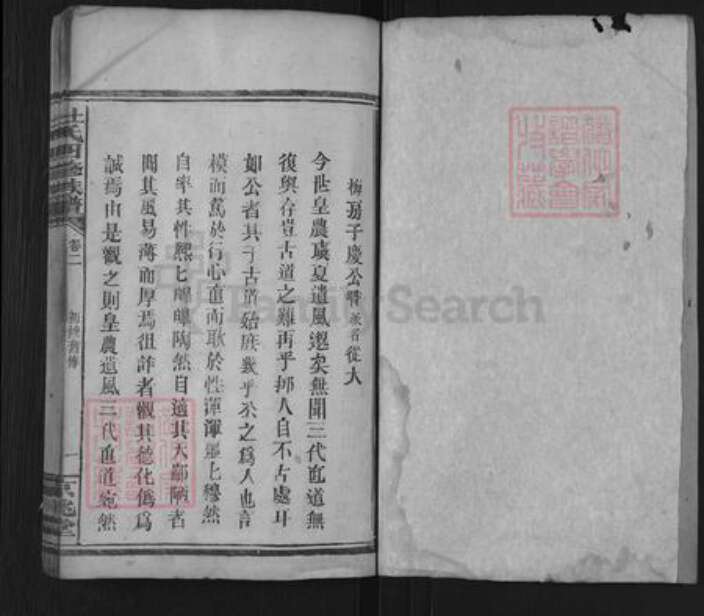 梅房子慶公贊
從大
今世皇農虞夏遺風邈矣無聞三代直道無
復與存豈古道之難再乎抑人自不古處耳
如公者其于古道殆庶幾乎公之為人也言
模而篤於行心直而耿於性渾渾噩匕穆然
自率其性熙匕皥皥陶然自適其天鄙陋者
聞其風易薄而厚焉徂詐者觀其德化僞為
誠焉由是觀之則皇農遺風三代直道宛然
杜氏四修族譜
卷二
一
FamilySearch